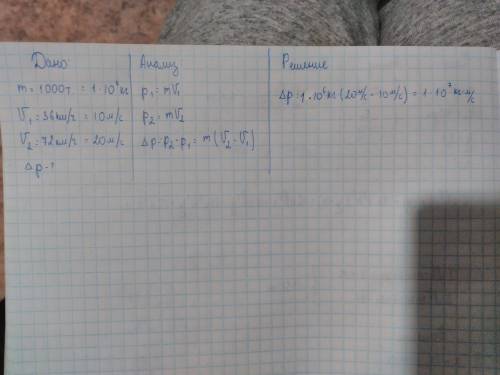 Дано:
m = 1000т. = 1·10⁶ кг
V₁ = 36км/ч = 10м/с
V₂ = 72км/ч = 20м/с
Δp - ?
Анализ
p₁ = mV₁
p₂ = mV₂
Δp = p₂ - p₁ = m(V₂ - V₁)
Решение
Δp = 1·10⁶ кг (20м/с - 10м/с) = 1·10⁷ кг·м/с